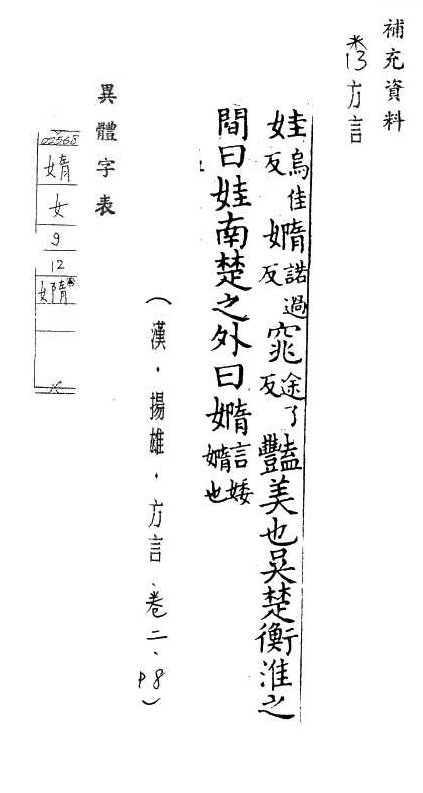 補充資料
米13方言
娃烏佳反嫷諾過反窕途了反豔美也吳楚衡淮之
間曰娃南楚之外曰嫷言婑嫷也
(漢．揚雄．方言、卷二、P8)
異體字表
02568
媠
女
9
12
嫷